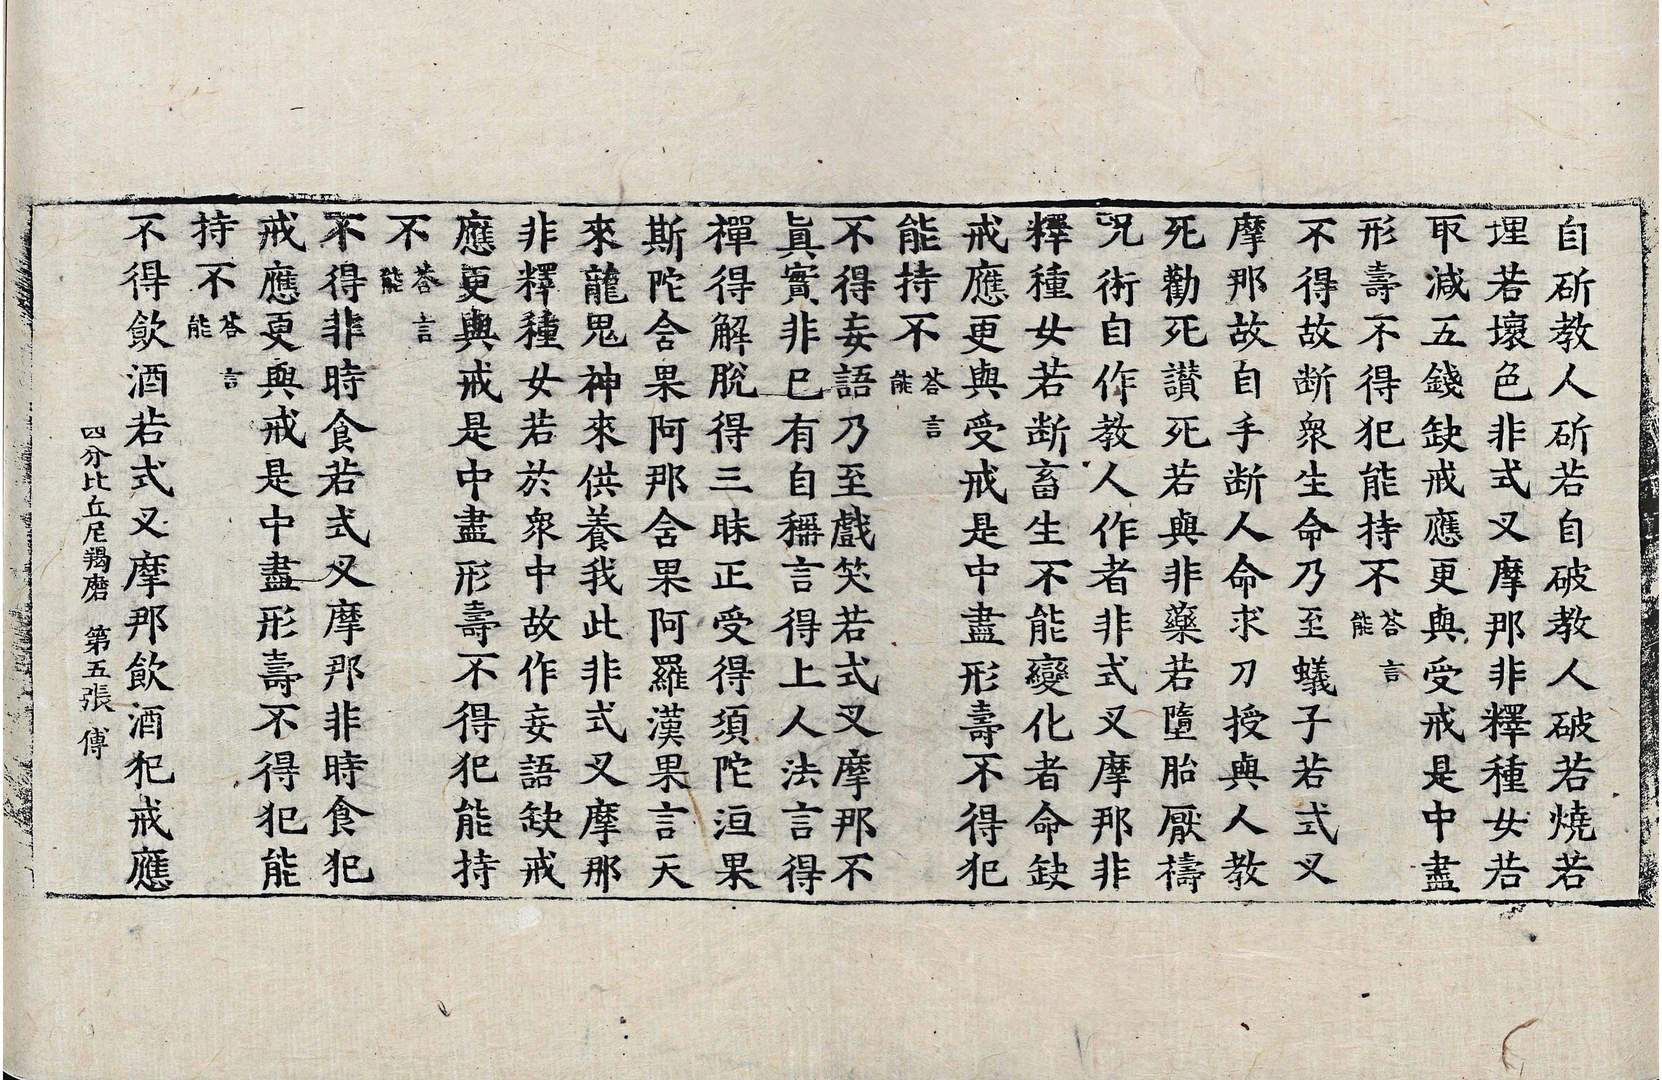 自斫教人斫若自破教人破若燒若
埋若壞色非式叉摩那非釋種女若
取減五錢缺戒應更與受戒是中盡
形壽不得犯能持不 答言能
不得故断衆生命乃至蟻子若式叉
摩那故自手断人命求刀授與人教
死勸死讃死若與非藥若墮胎厭禱
呪術自作教人作者非式叉摩那非
釋種女若断畜生不能變化者命缺
戒應更與受戒是中盡形壽不得犯
能持不 答言能
不得妄語乃至戲笑若式叉摩那不
真實非己有自稱言得上人法言得
禪得解脫得三昧正受得須陀洹果
斯陀含果阿那含果阿羅漢果言天
來龍鬼神來供養我此非式叉摩那
非釋種女若於衆中故作妄語缺戒
應更與戒是中盡形壽不得犯能持
不 答言能
不得非時食若式叉摩那非時食犯
戒應更與戒是中盡形壽不得犯能
持不 答言能
不得飲酒若式叉摩那飲酒犯戒應
四分比丘尼羯磨 第五張 傅